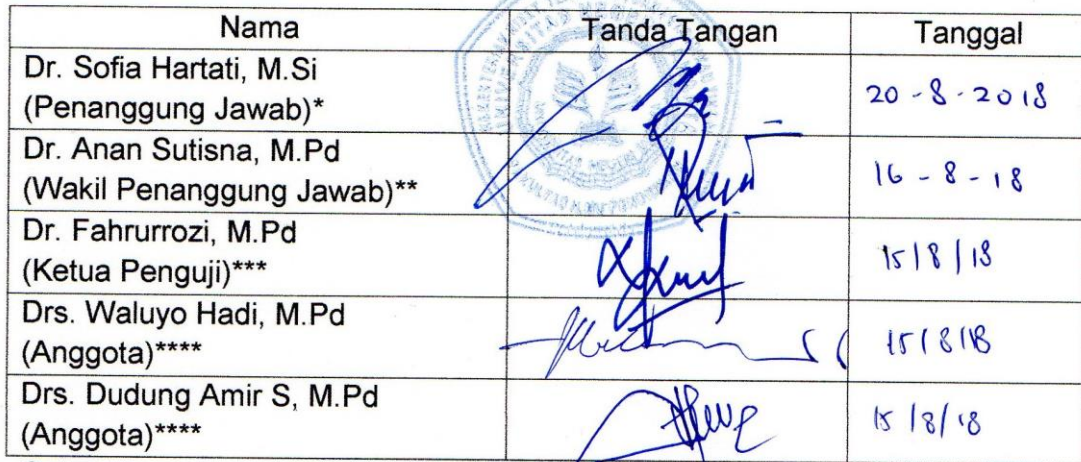 Nama Tanda Tangan Tanggal
Dr. Sofia Hartati, M.Si
(Penanggung Jawab)* 20-8-2018
Dr. Anan Sutisna, M.Pd
(Wakil Penanggung Jawab)** 16-8-18
Dr. Fahrurrozi, M.Pd
(Ketua Penguji)*** 15/8/18
Drs. Waluyo Hadi, M.Pd
(Anggota)**** 15/8/18
Drs. Dudung Amir S, M.Pd
(Anggota)**** 15/8/18